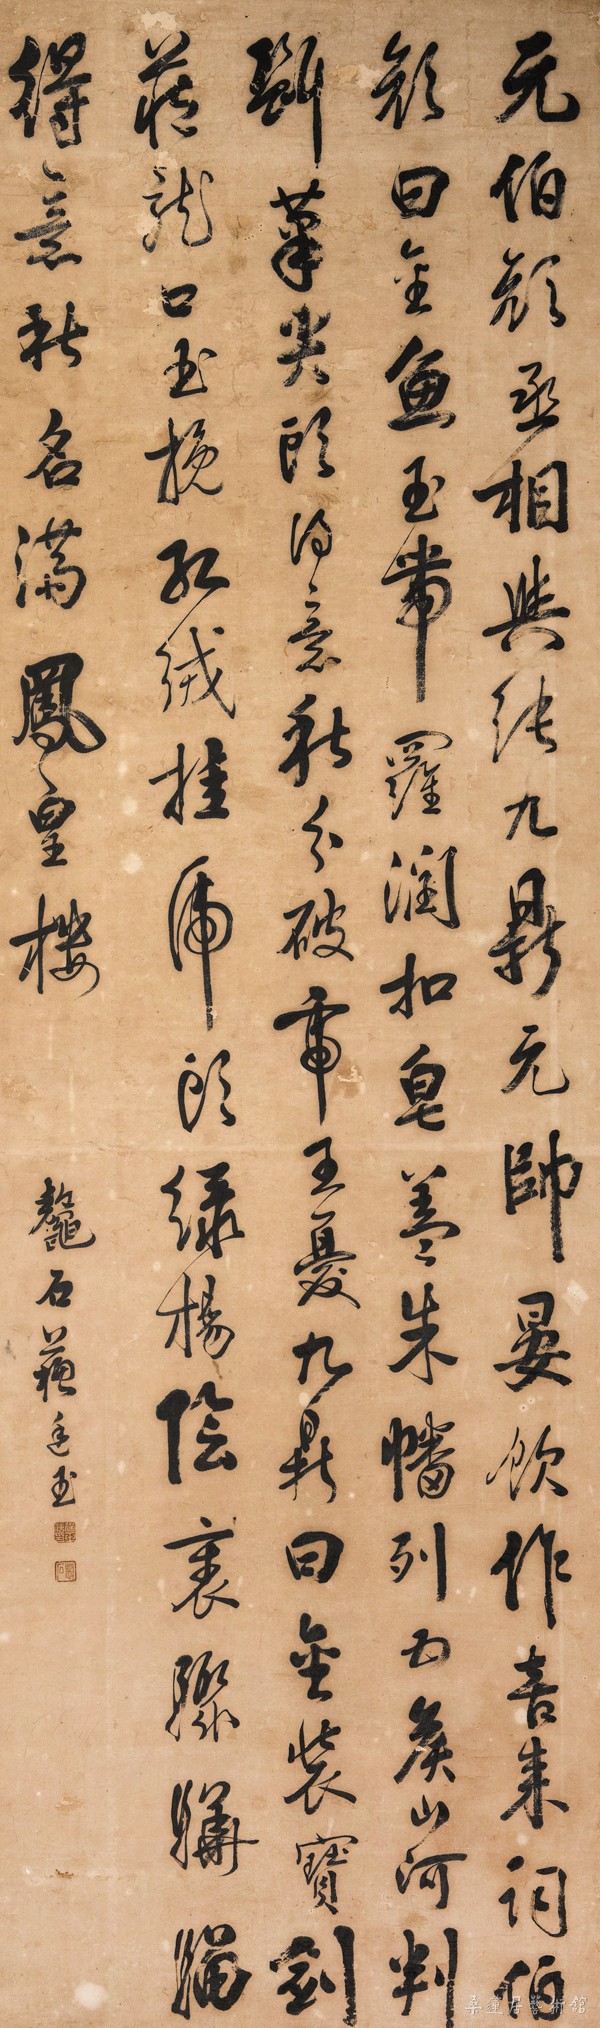 元伯顏丞相與張九鼎元帥晏飲作喜來詞伯
顏曰金魚玉帶羅襴扣皂蓋朱幡列五矦山河判
斷筆尖頭得意秋分破帝王憂九鼎曰金裝寶劍
藏龍口玉挽紅絨挂虎頭綠楊陰裏驟驊騮
得意秋名滿鳳皇樓
鼇石蘇廷玉
桑蓮居藝術館